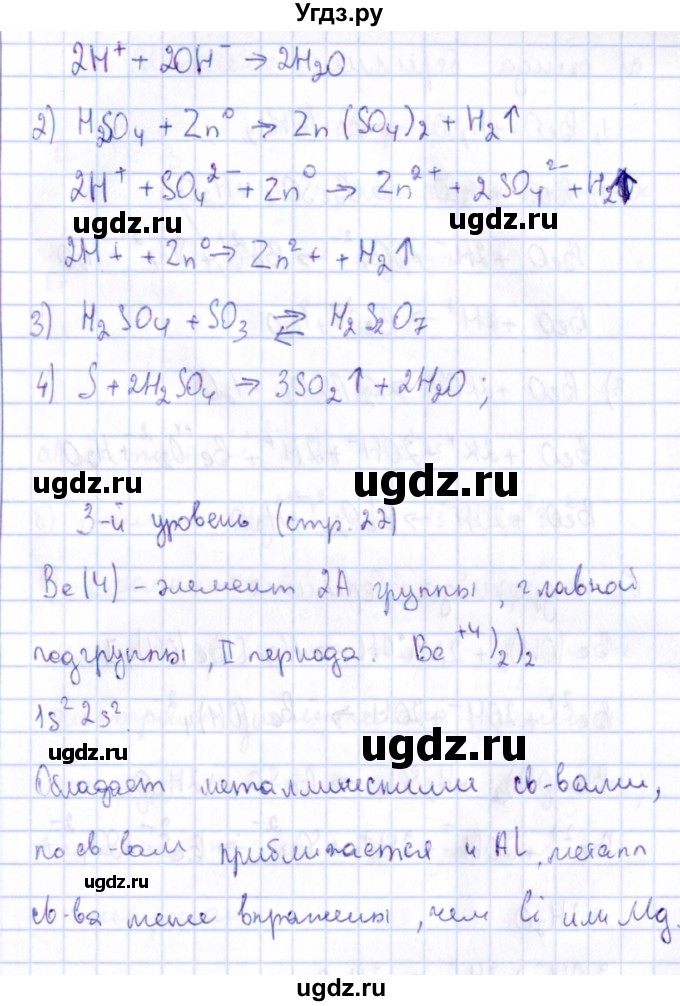 Угдз.ру
2H⁺ + 2OH⁻ → 2H₂O
2) H₂SO₄ + Zn⁰ → Zn(SO₄)₂ + H₂↑
2H⁺ + SO₄²⁻ + Zn⁰ → Zn²⁺ + 2SO₄²⁻ + H₂↑
ugdz.ru ugdz.ru
2H⁺ + Zn⁰ → Zn²⁺ + H₂↑
3) H₂SO₄ + SO₃ ⇄ H₂S₂O₇
4) S + 2H₂SO₄ → 3SO₂↑ + 2H₂O;
ugdz.ru ugdz.ru
3-й уровень (стр. 22)
Be(4) - элемент 2А группы, главной
подгруппы, II периода. Be⁺⁴ )₂)₂
1s² 2s².
ugdz.ru
Обладает металлическими св-вами,
по св-вам приближается к AL, металл
ugdz.ru
св-ва менее выражены, чем Li или Mg.
ugdz.ru